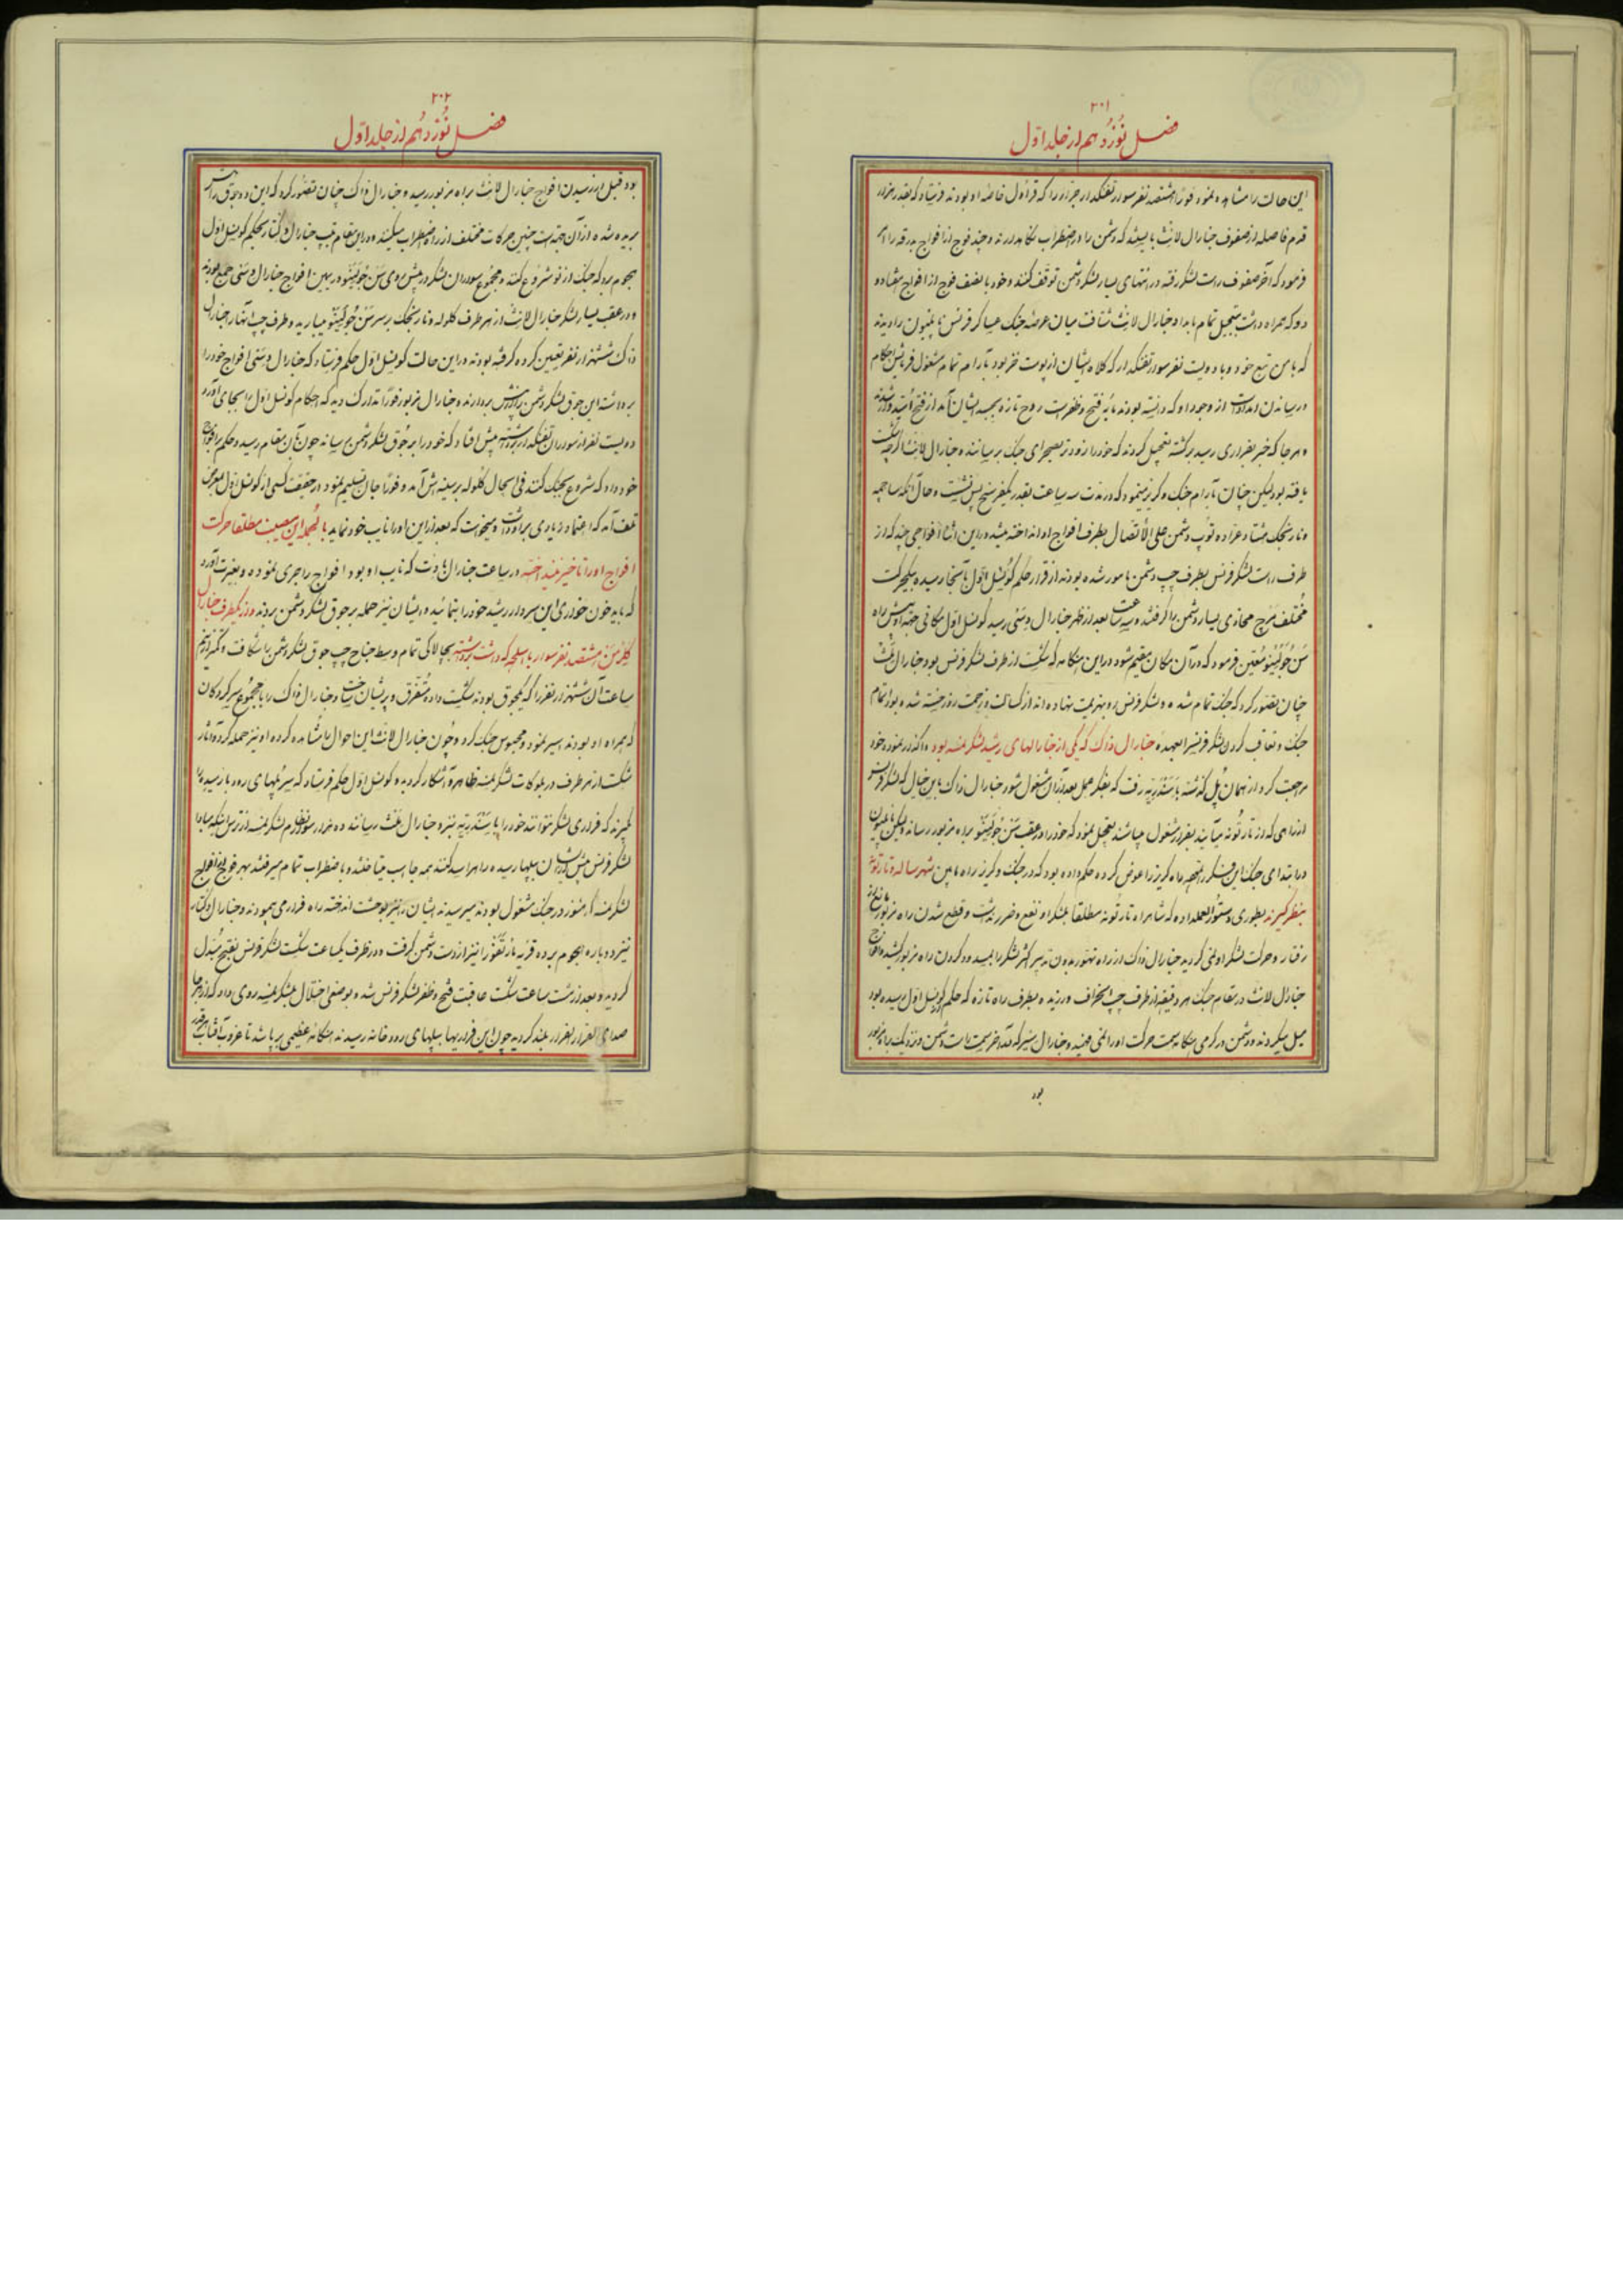 ۲۰۱
فصل نوزدهم از جلد اول
این حالت را مشاهده نمود فوراً هشتصد نفر سوار تفنگدار جرار را که قراول خاصه او بودند فرستاد که بقدر هزار
قدم فاصله از صفوف جنارال لانث بایستند که دشمن را در اضطراب نگاهدارند و چند فوج از افواج بدرقه را امر
فرمود که آخر صفوف راست لشکر رفته در انتهای یسار لشکر دشمن توقف کنند و خود با نصف فوج از افواج هفتاد و
دو که همراه داشت بتعجیل تمام بامداد جنارال لانث شتافت میان عرصه جنگ عساکر فرنس ناپلیون را دیدند
که با من تبع خود و با دویست نفر سوار تفنگدار که کلاه ایشان از پوست خز بود بآرام تمام مشغول فرمایش احکام
و رسانیدن امداد است از وجود او که دانسته بودند مایه فتح و ظفر است روح تازه بجسد ایشان آمد از فتح امیدوار شدند
و هر جا که خبر بفراری رسید برگشته تعجیل کردند که خود را زودتر بصحرای جنگ برسانند و جنارال لانث اگرچه شکست
یافته بود لیکن چنان بآرام جنگ و گریز مینمود که در مدت سه ساعت بقدر یکفرسخ پس ننشست و حال آنکه ساچمه
و نارنجک هشتاد عراده توپ دشمن علی الاتصال بطرف افواج او انداخته میشد در این اثنا افواجی چند که از
طرف راست لشکر فرنس بطرف چپ دشمن مامور شده بودند از قرار حکم کونسل اول بآنجا رسیده بیکحرکت
مختلف مرج محاذی یسار دشمن را گرفتند و سه ساعت بعد از ظهر جنارال دسی رسید کونسل اول مکانی جنب او پیش راه
سن جولینو معین فرمود که در آن مکان مقیم شود در این هنگامه که شکست از طرف لشکر فرنس بود جنارال ملث
چنان تصور کرد که جنگ تمام شده و لشکر فرنس رو بهزیمت نهاده اند از کسالت و زحمت روز خسته شده بود اتمام
جنگ و تعاقب کردن لشکر فرنس را بعهده جنارال ذاک که یکی از جنارالهای رشید لشکر نمسه بود واگذار نمود و خود
مراجعت کرد از همان پل گذشته باسکندریه رفت که بفکر عمل بعد از آن مشغول شود جنارال ذاک باین خیال که لشکر فرنس
از راهی که از تارتونه میآیند بفرار مشغول میباشند تعجیل نمود که خود را در عقب سن جولینو براه مزبور رساند ولیکن ناپلیون
در ابتدای جنگ این فکر را فهمیده راه گریز را عوض کرده حکم داده بود که در جنگ و گریز راه مابین شهر ساله و تارتونه
بنظر گیرند بطوری دستورالعمل داده که شاهراه تارتونه مطلقا بلشکر او نفع و ضرر نداشت و قطع شدن راه مزبور مانع از
رفتار و حرکت لشکر او نمی گردید جنارال ذاک از راه تهور بدون تدبیر اکثر لشکر را بمسدود کردن راه مزبور کشید و افواج
جنارال لانث در مقام جنگ هر دقیقه از طرف چپ انحراف ورزیده بطرف راه تازه که حکم کونسل اول رسیده بود
میل میکردند و دشمن در گرمی هنگامه سمت حرکت او را نمی فهمید و جنارال منیر که در آخر سمت راست دشمن و نزدیک براه مزبور
بود
۲۰۲
فصل نوزدهم از جلد اول
بود قبل از رسیدن افواج جنارال لانث براه مزبور رسید و جنارال ذاک چنان تصور کرد که این دو جوق از هم
بریده شده از آن جهت است چنین حرکات مختلف از راه اضطراب میکنند در این مقام تیپ جنارال گنار بحکم کونسل اول
هجوم برد که جنگ از نو شروع کنند و مجموع سواران لشکر در پیش روی سن جولینو در بین افواج جنارال دسی جمع بودند
و در عقب یسار لشکر جنارال لانث از هر طرف گلوله و نارنجک بر سر سن جولینو میبارید و طرف چپ آنها را جنارال
ذاک ششهزار نفر تعیین کرده گرفته بودند در این حالت کونسل اول حکم فرستاد که جنارال دسی افواج خود را
برداشته این جوق لشکر دشمن را از پیش بردارند و جنارال مزبور فوراً تدارک دید که احکام کونسل اول را بجای آورد
دویست نفر از سواران تفنگدار برداشته پیش افتاد که خود را بر جوق لشکر دشمن برساند چون بآن مقام رسید و حکم بر افواج
خود داد که شروع بجنگ کنند فی الحال گلوله بر سینه اش آمد و فوراً جان تسلیم نمود در حقیقت کسی از کونسل اول بمعرض
تلف آمد که اعتماد زیادی بر او داشت و میخواست که بعد از این او را نایب خود نماید بالجمله این مصیبت مطلقا حرکت
افواج او را تاخیر نینداخته در ساعت جنارال بادت که نایب او بود افواج را جری نموده و بغیرت آورد
که باید خون خواری این سردار رشید خود را بنمائید و ایشان نیز حمله بر جوق لشکر دشمن بردند و از یکطرف جنارال
کلرمن هشتصد نفر سوار با اسلحه که داشت برداشته بچالاکی تمام وسط جناح چپ جوق لشکر دشمن را شکافت و کمتر از نیم
ساعت آن ششهزار نفر را که یکجوق بودند شکست داده متفرق و پریشان ساخت و جنارال ذاک را با مجموع سرکردگان
که همراه او بودند اسیر نمود و محبوس جنگ کرد و چون جنارال لانث این احوال را مشاهده کرده او نیز حمله کرد و آثار
شکست از هر طرف در بلوکات لشکر نمسه ظاهر و آشکار گردید و کونسل اول حکم فرستاد که سر پلهای رود بارمیده را
گیرند که فراری لشکر نتوانند خود را باسکندریه نزد جنارال ملث رسانند ده هزار سوار نظام لشکر نمسه از ترس اینکه مبادا
لشکر فرنس پیش از ایشان بپلها رسیده راهرا سد کنند همه جا اسب میتاختند و باضطراب تمام میرفتند بهر فوج از افواج
لشکر نمسه که هنوز در جنگ مشغول بودند میرسیدند ایشان را نیز بوحشت انداخته راه فرار می پیمودند و جنارال وکتار
نیز دوباره هجوم برده قریه مارنغو را نیز از دست دشمن گرفت و در ظرف یکساعت شکست لشکر فرنس بفتح مبدل
گردید و بعد از هشت ساعت شکست عاقبت فتح و ظفر لشکر فرنس شده و بوضعی اختلال بلشکر نمسه روی داد که از هر جا
صدای الفرار الفرار بلند گردید چون این فراریها بپلهای رودخانه رسیدند هنگامه عظیمی برپا شد تا غروب آفتاب هر قدر